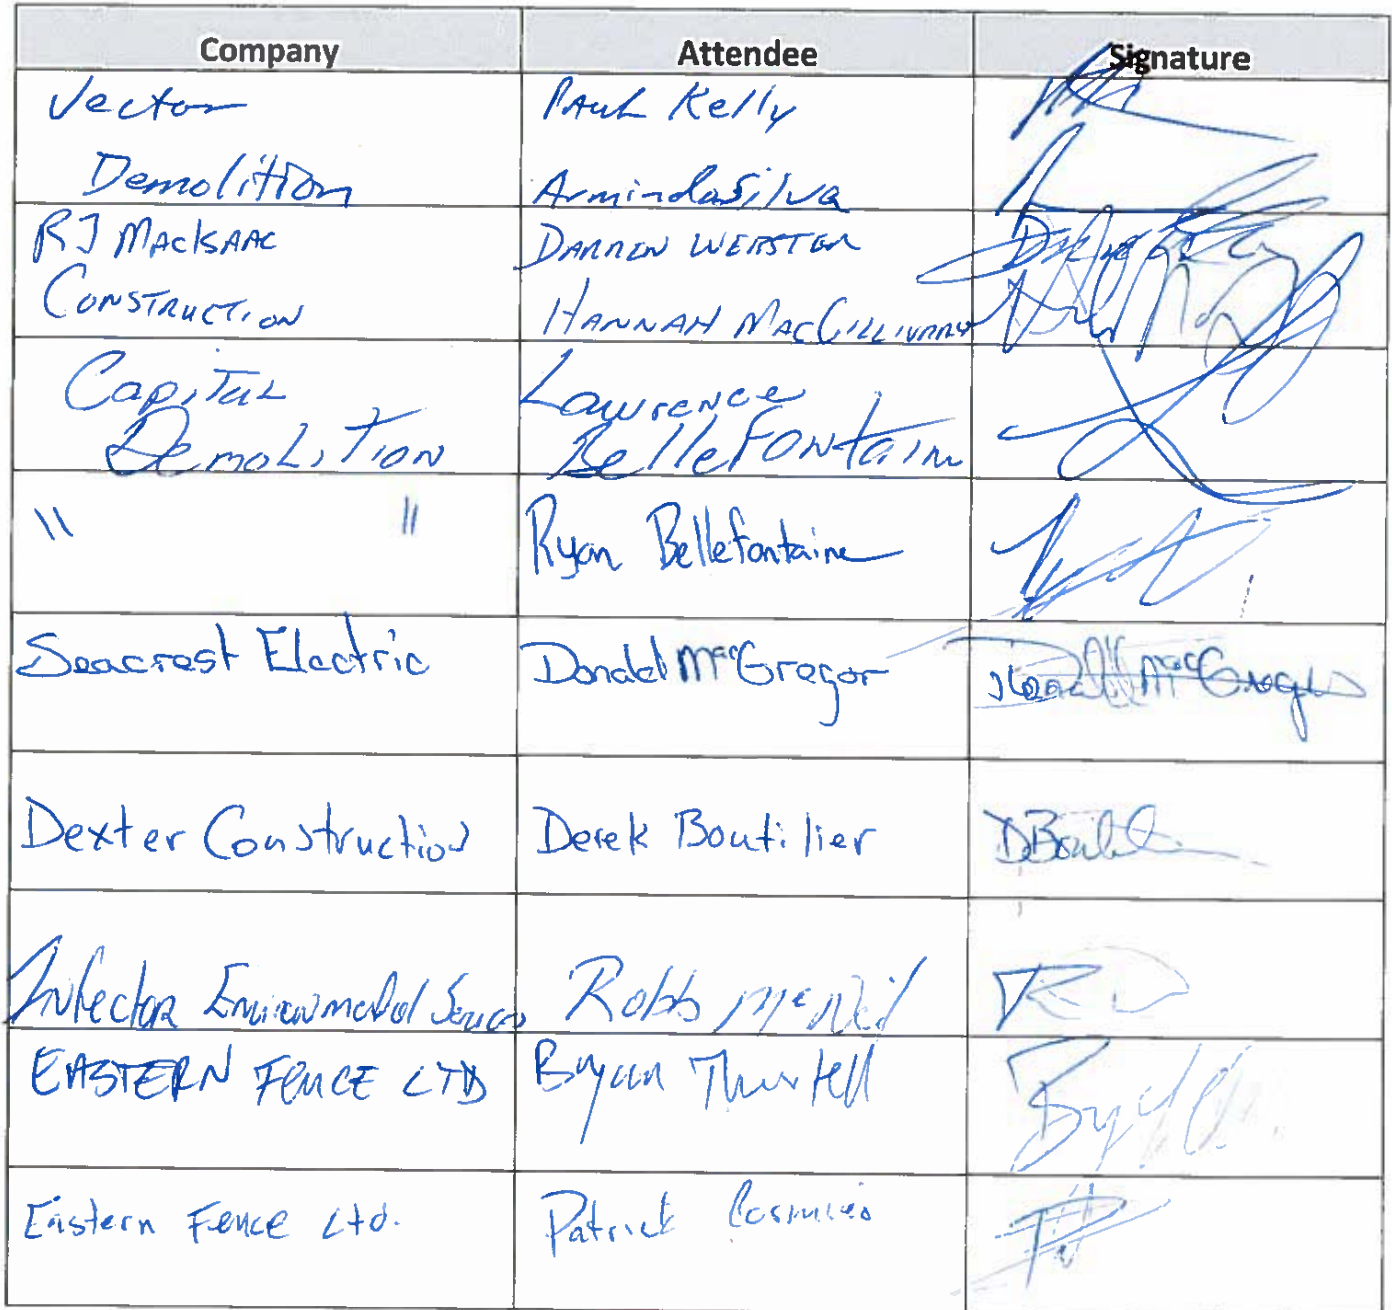 Company Attendee Signature
Vector Paul Kelly
Demolition Armindasilva
RJ MacIsaac Darren Webster
Construction Hannah MacGillivray
Capital Lawrence
Demolition Bellefontaine
" " Ryan Bellefontaine
Seacrest Electric Donald MacGregor Donald MacGregor
Dexter Construction Derek Boutilier DBoutilier
Environmental Services Robb McNeil
EASTERN FENCE LTD Bryan Thurtell
Eastern Fence Ltd. Patrick